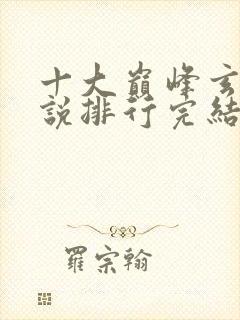 十大巔峰玄
說排行完結
羅宗翰